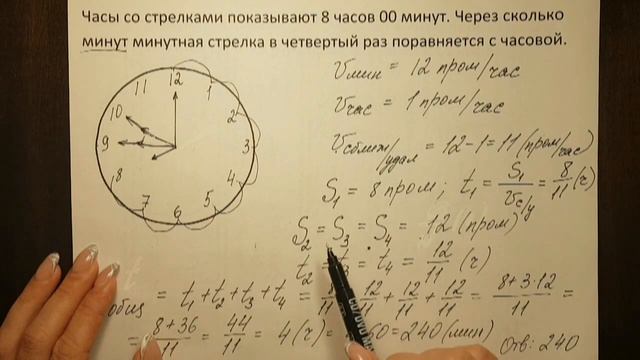 Часы со стрелками показывают 8 часов 00 минут. Через сколько
минут минутная стрелка в четвертый раз поравняется с часовой.
12
1
2
3
4
5
6
7
8
9
10
11
Vмин = 12 пром/час
Vчас = 1 пром/час
Vсближ/удал = 12-1=11 (пром/час)
S1 = 8 пром; t1 = S1/Vс/у = 8/11 (ч)
S2 = S3 = S4 = 12 (пром)
t2 = t3 = t4 = 12/11 (ч)
общ = t1 + t2 + t3 + t4 = 8/ 12/11 + 12/11 + 12/11 = 8+3·12/11 =
= 8+36/11 = 44/11 = 4 (ч) = 60 = 240 (мин)
Отв: 240
CD/DVD